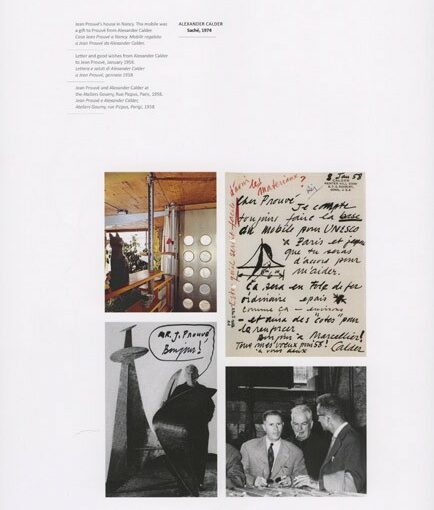 Jean Prouvé's house in Nancy. The mobile was
a gift to Prouvé from Alexander Calder.
Casa Jean Prouvé a Nancy. Mobile regalato
a Jean Prouvé da Alexander Calder.
Letter and good wishes from Alexander Calder
to Jean Prouvé, January 1958.
Lettera e saluti di Alexander Calder
a Jean Prouvé, gennaio 1958
Jean Prouvé and Alexander Calder at
the Ateliers Goumy, Rue Picpus, Paris, 1958.
Jean Prouvé e Alexander Calder,
Ateliers Goumy, rue Picpus, Parigi, 1958
ALEXANDER CALDER
Saché, 1974
8 Jan 58
CALDER
PAINTER HILL ROAD
R.F.D. ROXBURY
CONN. U.S.A.
matériaux?
Cher Prouvé –
Je compte
toujours faire la base
du mobile pour UNESCO
à Paris et j'espère
que tu seras
d'accord pour
m'aider.
Ça sera en tole de fer
ordinaire epais
comme ça – environ
– et aura des "cotes" pour
le renforcer
Bonjour à Marcellier!
Tous mes voeux pour 58!
à vous deux
Calder
MR. J. Prouvé
Bonjour!